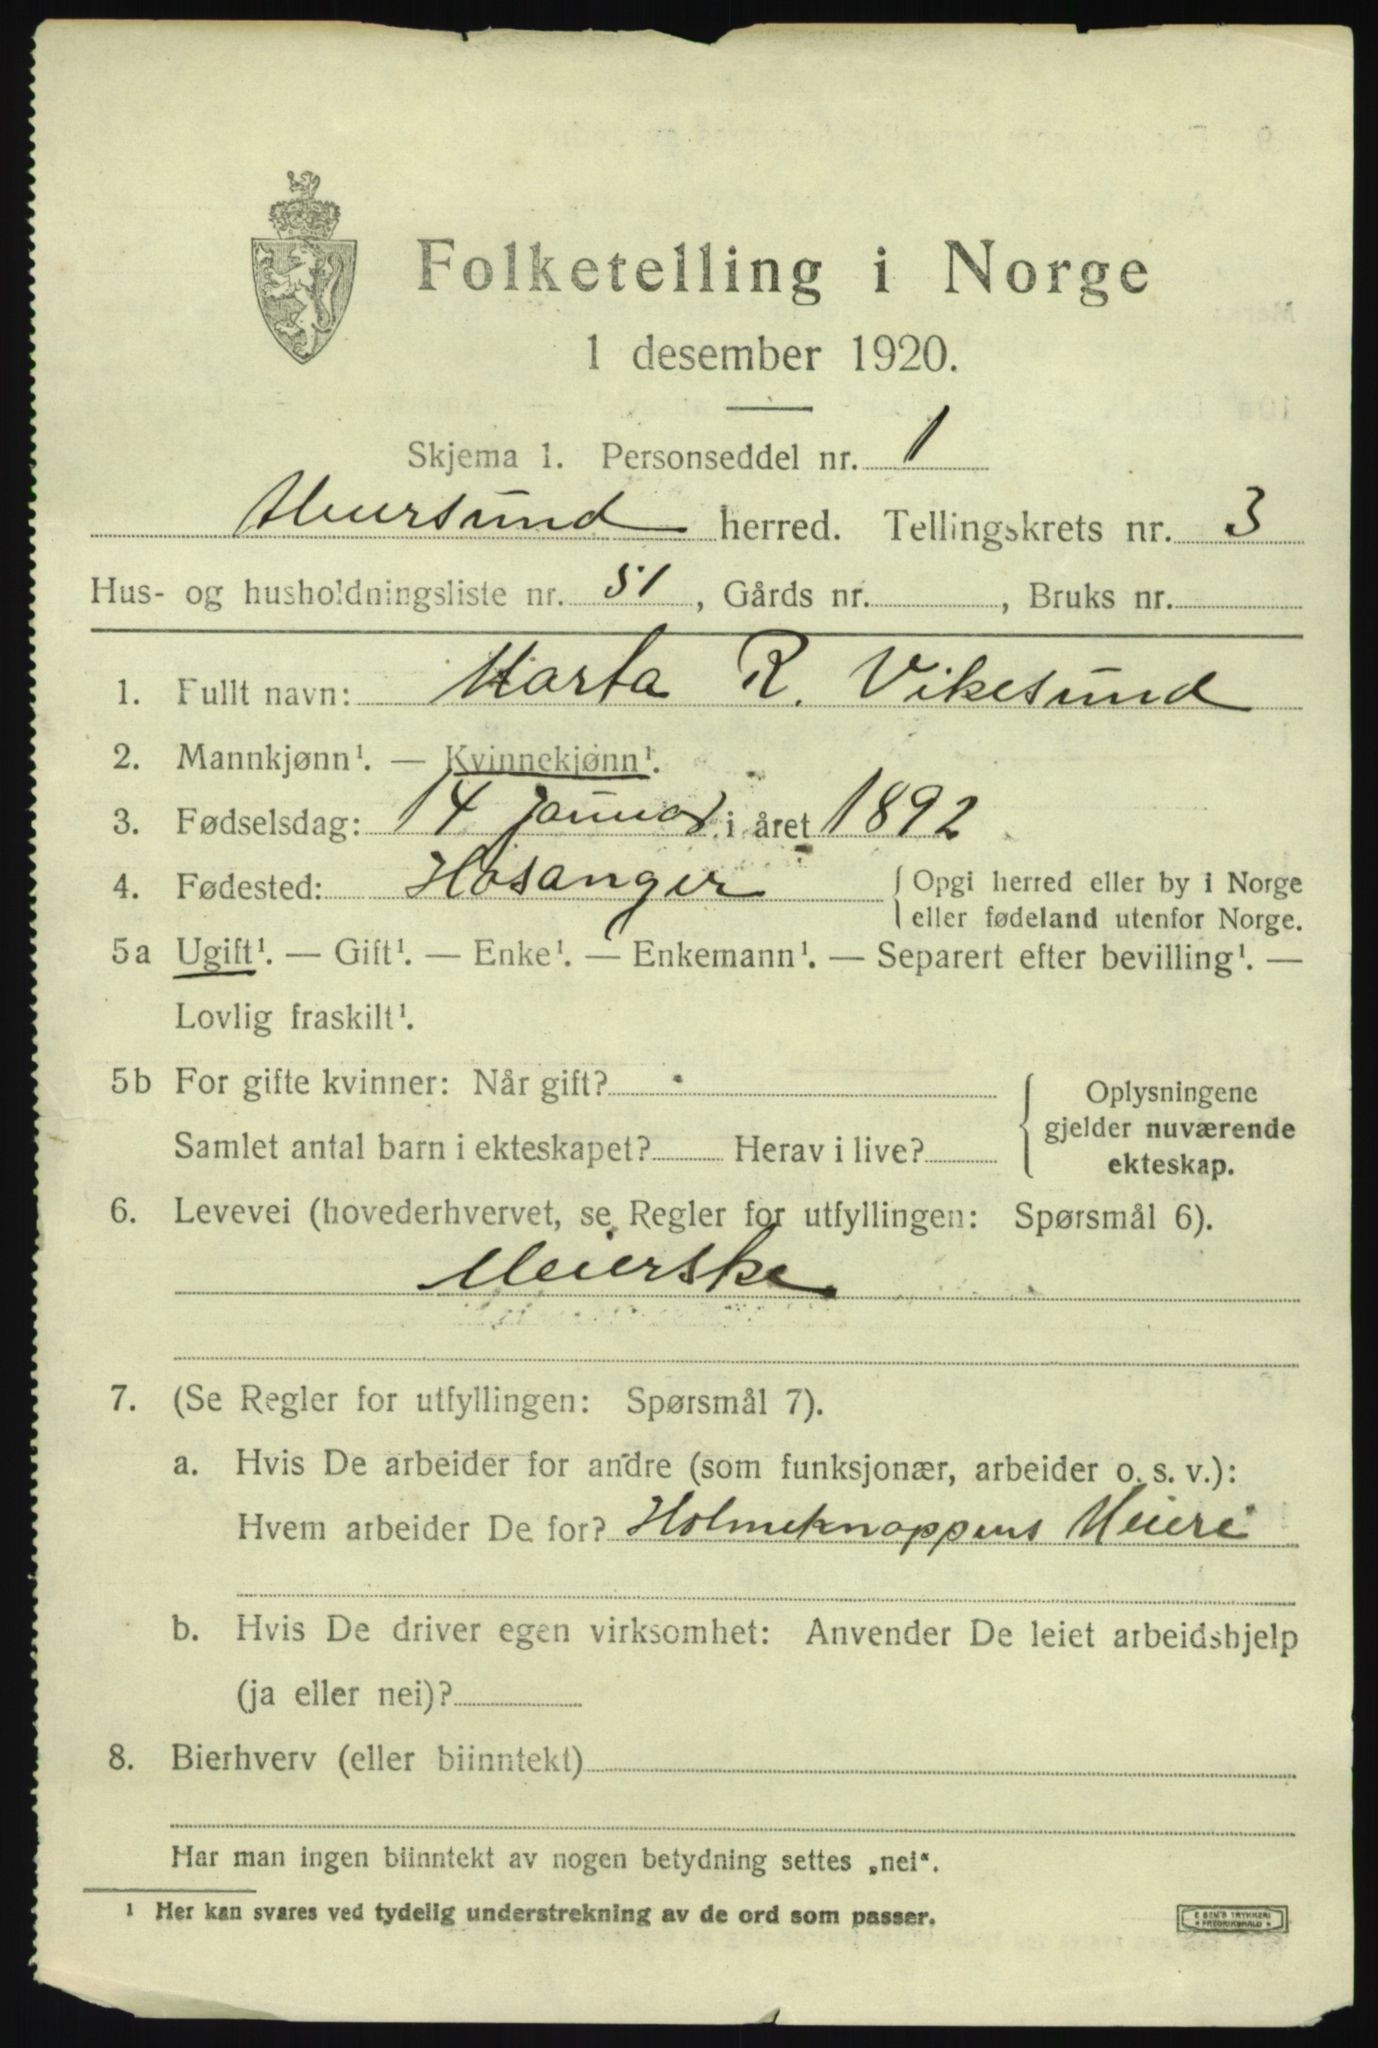 Folketelling i Norge
1 desember 1920.
Skjema 1. Personseddel nr. 1
herred. Tellingskrets nr. 3
Hus- og husholdningsliste nr. 51, Gårds nr. , Bruks nr.
1. Fullt navn: Marta R. Vikesund
2. Mannkjønn¹. — Kvinnekjønn¹.
3. Fødselsdag: 14 januar i året 1892
4. Fødested: Hosanger { Opgi herred eller by i Norge
eller fødeland utenfor Norge.
5a Ugift¹. — Gift¹. — Enke¹. — Enkemann¹. — Separert efter bevilling¹. —
Lovlig fraskilt¹.
5b For gifte kvinner: Når gift?
Samlet antal barn i ekteskapet? Herav i live?
{ Oplysningene
gjelder nuværende
ekteskap.
6. Levevei (hovederhvervet, se Regler for utfyllingen: Spørsmål 6).
Meierske
7. (Se Regler for utfyllingen: Spørsmål 7).
a. Hvis De arbeider for andre (som funksjonær, arbeider o. s. v.):
Hvem arbeider De for? Holmeknappens Meieri
b. Hvis De driver egen virksomhet: Anvender De leiet arbeidshjelp
(ja eller nei)?
8. Bierhverv (eller biinntekt)
Har man ingen biinntekt av nogen betydning settes „nei“.
¹ Her kan svares ved tydelig understrekning av de ord som passer.
E SEM'S TRYKKERI
• FREDRIKSHALD •